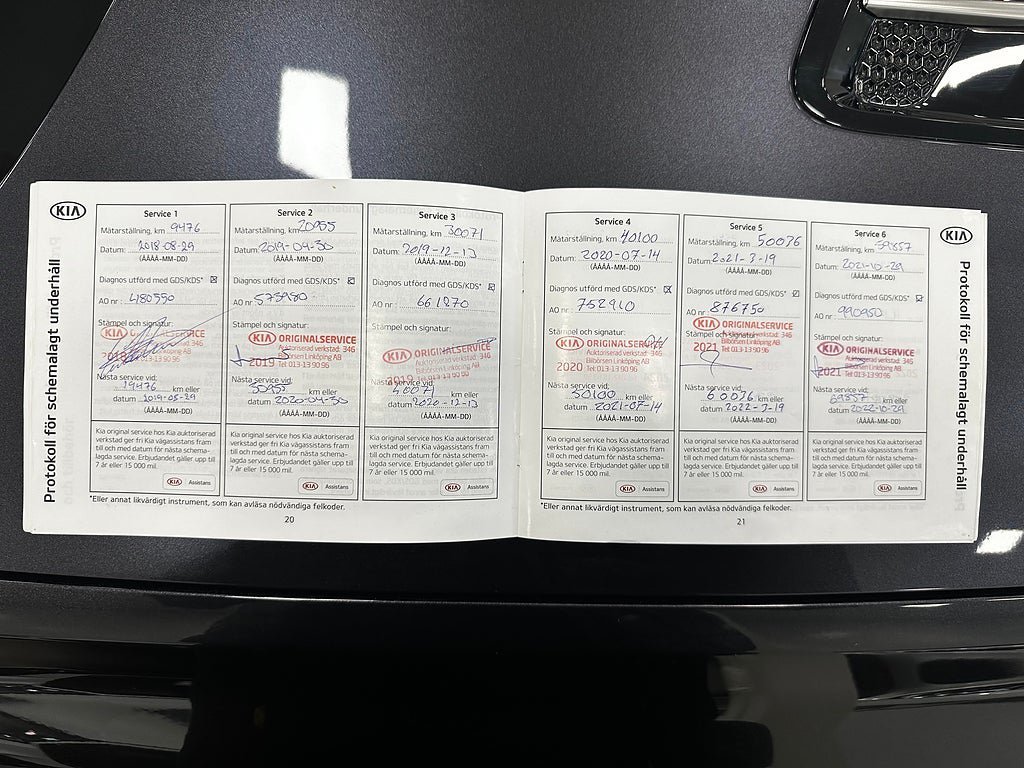 KIA
Protokoll för schemalagt underhåll
Service 1
Mätarställning, km 9476
Datum: 2018-08-29
(ÅÅÅÅ-MM-DD)
Diagnos utförd med GDS/KDS*
AO nr: 480550
Stämpel och signatur:
KIA ORIGINALSERVICE
Auktoriserad verkstad: 346
Bilbörsen Linköping AB
Tel 013-13 90 96
Nästa service vid:
19476 km eller
datum 2019-08-29
(ÅÅÅÅ-MM-DD)
Kia original service hos Kia auktoriserad
verkstad ger fri Kia vägassistans fram
till och med datum för nästa schema-
lagda service. Erbjudandet gäller upp till
7 år eller 15 000 mil.
KIA Assistans
Service 2
Mätarställning, km 20955
Datum: 2019-04-30
(ÅÅÅÅ-MM-DD)
Diagnos utförd med GDS/KDS*
AO nr: 573980
Stämpel och signatur:
KIA ORIGINALSERVICE
Auktoriserad verkstad: 346
Bilbörsen Linköping AB
2019 Tel 013-13 90 96
Nästa service vid:
30955 km eller
datum 2020-04-30
(ÅÅÅÅ-MM-DD)
Kia original service hos Kia auktoriserad
verkstad ger fri Kia vägassistans fram
till och med datum för nästa schema-
lagda service. Erbjudandet gäller upp till
7 år eller 15 000 mil.
KIA Assistans
Service 3
Mätarställning, km 30071
Datum: 2019-12-13
(ÅÅÅÅ-MM-DD)
Diagnos utförd med GDS/KDS*
AO nr: 661270
Stämpel och signatur:
KIA ORIGINALSERVICE
Auktoriserad verkstad: 346
Bilbörsen Linköping AB
2019 Tel 013-13 90 96
Nästa service vid:
40071 km eller
datum 2020-12-13
(ÅÅÅÅ-MM-DD)
Kia original service hos Kia auktoriserad
verkstad ger fri Kia vägassistans fram
till och med datum för nästa schema-
lagda service. Erbjudandet gäller upp till
7 år eller 15 000 mil.
KIA Assistans
*Eller annat likvärdigt instrument, som kan avläsa nödvändiga felkoder.
20
Service 4
Mätarställning, km 40100
Datum: 2020-07-14
(ÅÅÅÅ-MM-DD)
Diagnos utförd med GDS/KDS*
AO nr: 752910
Stämpel och signatur:
KIA ORIGINALSERVICE
Auktoriserad verkstad: 346
Bilbörsen Linköping AB
2020 Tel 013-13 90 96
Nästa service vid:
50100 km eller
datum 2021-07-14
(ÅÅÅÅ-MM-DD)
Kia original service hos Kia auktoriserad
verkstad ger fri Kia vägassistans fram
till och med datum för nästa schema-
lagda service. Erbjudandet gäller upp till
7 år eller 15 000 mil.
KIA Assistans
Service 5
Mätarställning, km 50036
Datum: 2021-3-19
(ÅÅÅÅ-MM-DD)
Diagnos utförd med GDS/KDS*
AO nr: 876750
Stämpel och signatur:
KIA ORIGINALSERVICE
Auktoriserad verkstad: 346
2021 Bilbörsen Linköping AB
Tel 013-13 90 96
Nästa service vid:
60036 km eller
datum 2022-3-19
(ÅÅÅÅ-MM-DD)
Kia original service hos Kia auktoriserad
verkstad ger fri Kia vägassistans fram
till och med datum för nästa schema-
lagda service. Erbjudandet gäller upp till
7 år eller 15 000 mil.
KIA Assistans
Service 6
Mätarställning, km 59857
Datum: 2021-10-29
(ÅÅÅÅ-MM-DD)
Diagnos utförd med GDS/KDS*
AO nr: 990950
Stämpel och signatur:
KIA ORIGINALSERVICE
Auktoriserad verkstad: 346
Bilbörsen Linköping AB
2021 Tel 013-13 90 96
Nästa service vid:
69857 km eller
datum 2022-10-29
(ÅÅÅÅ-MM-DD)
Kia original service hos Kia auktoriserad
verkstad ger fri Kia vägassistans fram
till och med datum för nästa schema-
lagda service. Erbjudandet gäller upp till
7 år eller 15 000 mil.
KIA Assistans
*Eller annat likvärdigt instrument, som kan avläsa nödvändiga felkoder.
21
KIA
Protokoll för schemalagt underhåll